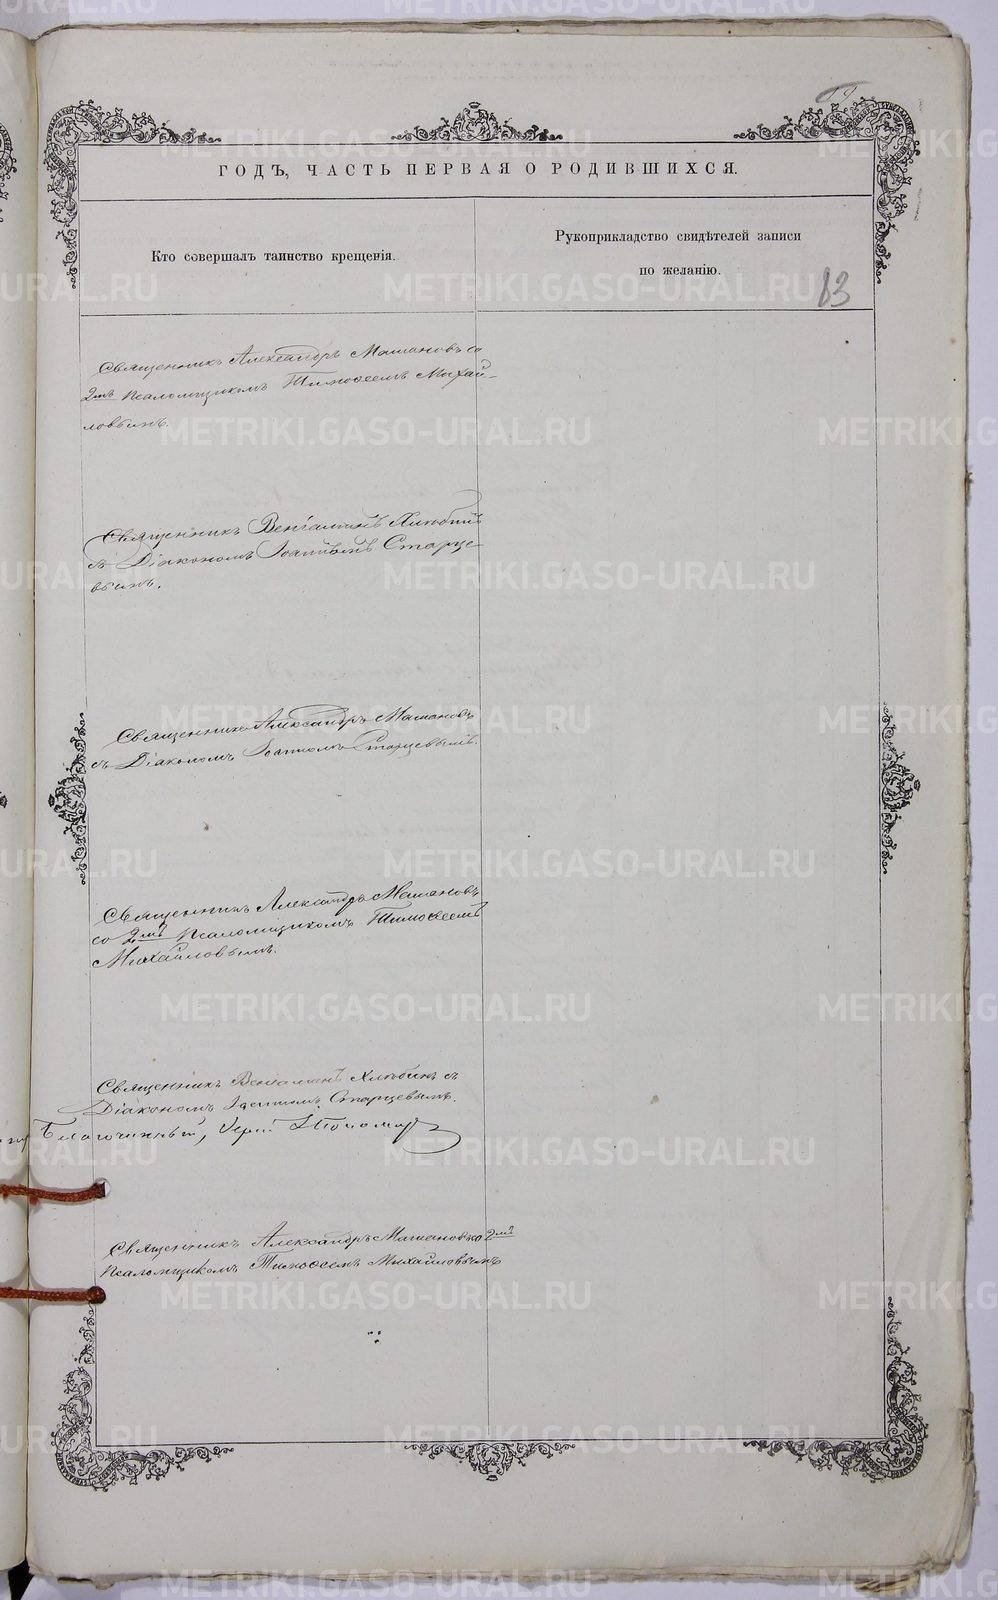 ГОДЪ, ЧАСТЬ ПЕРВАЯ О РОДИВШИХСЯ.
Кто совершалъ таинство крещенія.
Рукоприкладство свидѣтелей записи
по желанію.
13
Священникъ Александръ Машановъ со
2мъ Псаломщикомъ Тимоѳеемъ Михай-
ловымъ.
Священникъ Веніаминъ Хлюбинъ
съ Діакономъ Іоанномъ Старце-
вымъ.
Священникъ Александръ Машановъ
съ Діакономъ Іоанномъ Старцевымъ.
Священникъ Александръ Машановъ
со 2мъ Псаломщикомъ Тимоѳеемъ
Михайловымъ.
Священникъ Веніаминъ Хлюбинъ съ
Діакономъ Іоанномъ Старцевымъ.
Благочинный, Іерей Пономар
Священникъ Александръ Машановъ со 2мъ
Псаломщикомъ Тимоѳеемъ Михайловымъ
METRIKI.GASO-URAL.RU